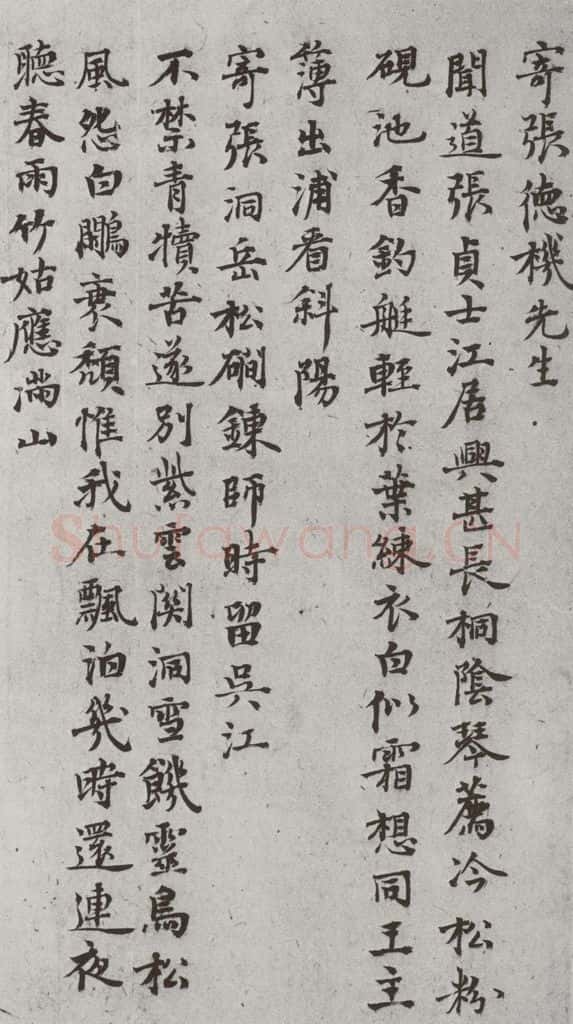 寄張德機先生
聞道張貞士江居興甚長桐陰琴薦冷松粉
硯池香釣艇輕於葉練衣白似霜想同王主
薄出浦看斜陽
寄張洞岳松磵鍊師時留吳江
不禁青犢苦遂別紫雲関洞雪饑靈鳥松
風怨白鷴衰頹惟我在飄泊幾時還連夜
聽春雨竹姑應満山
Shufawang.CN